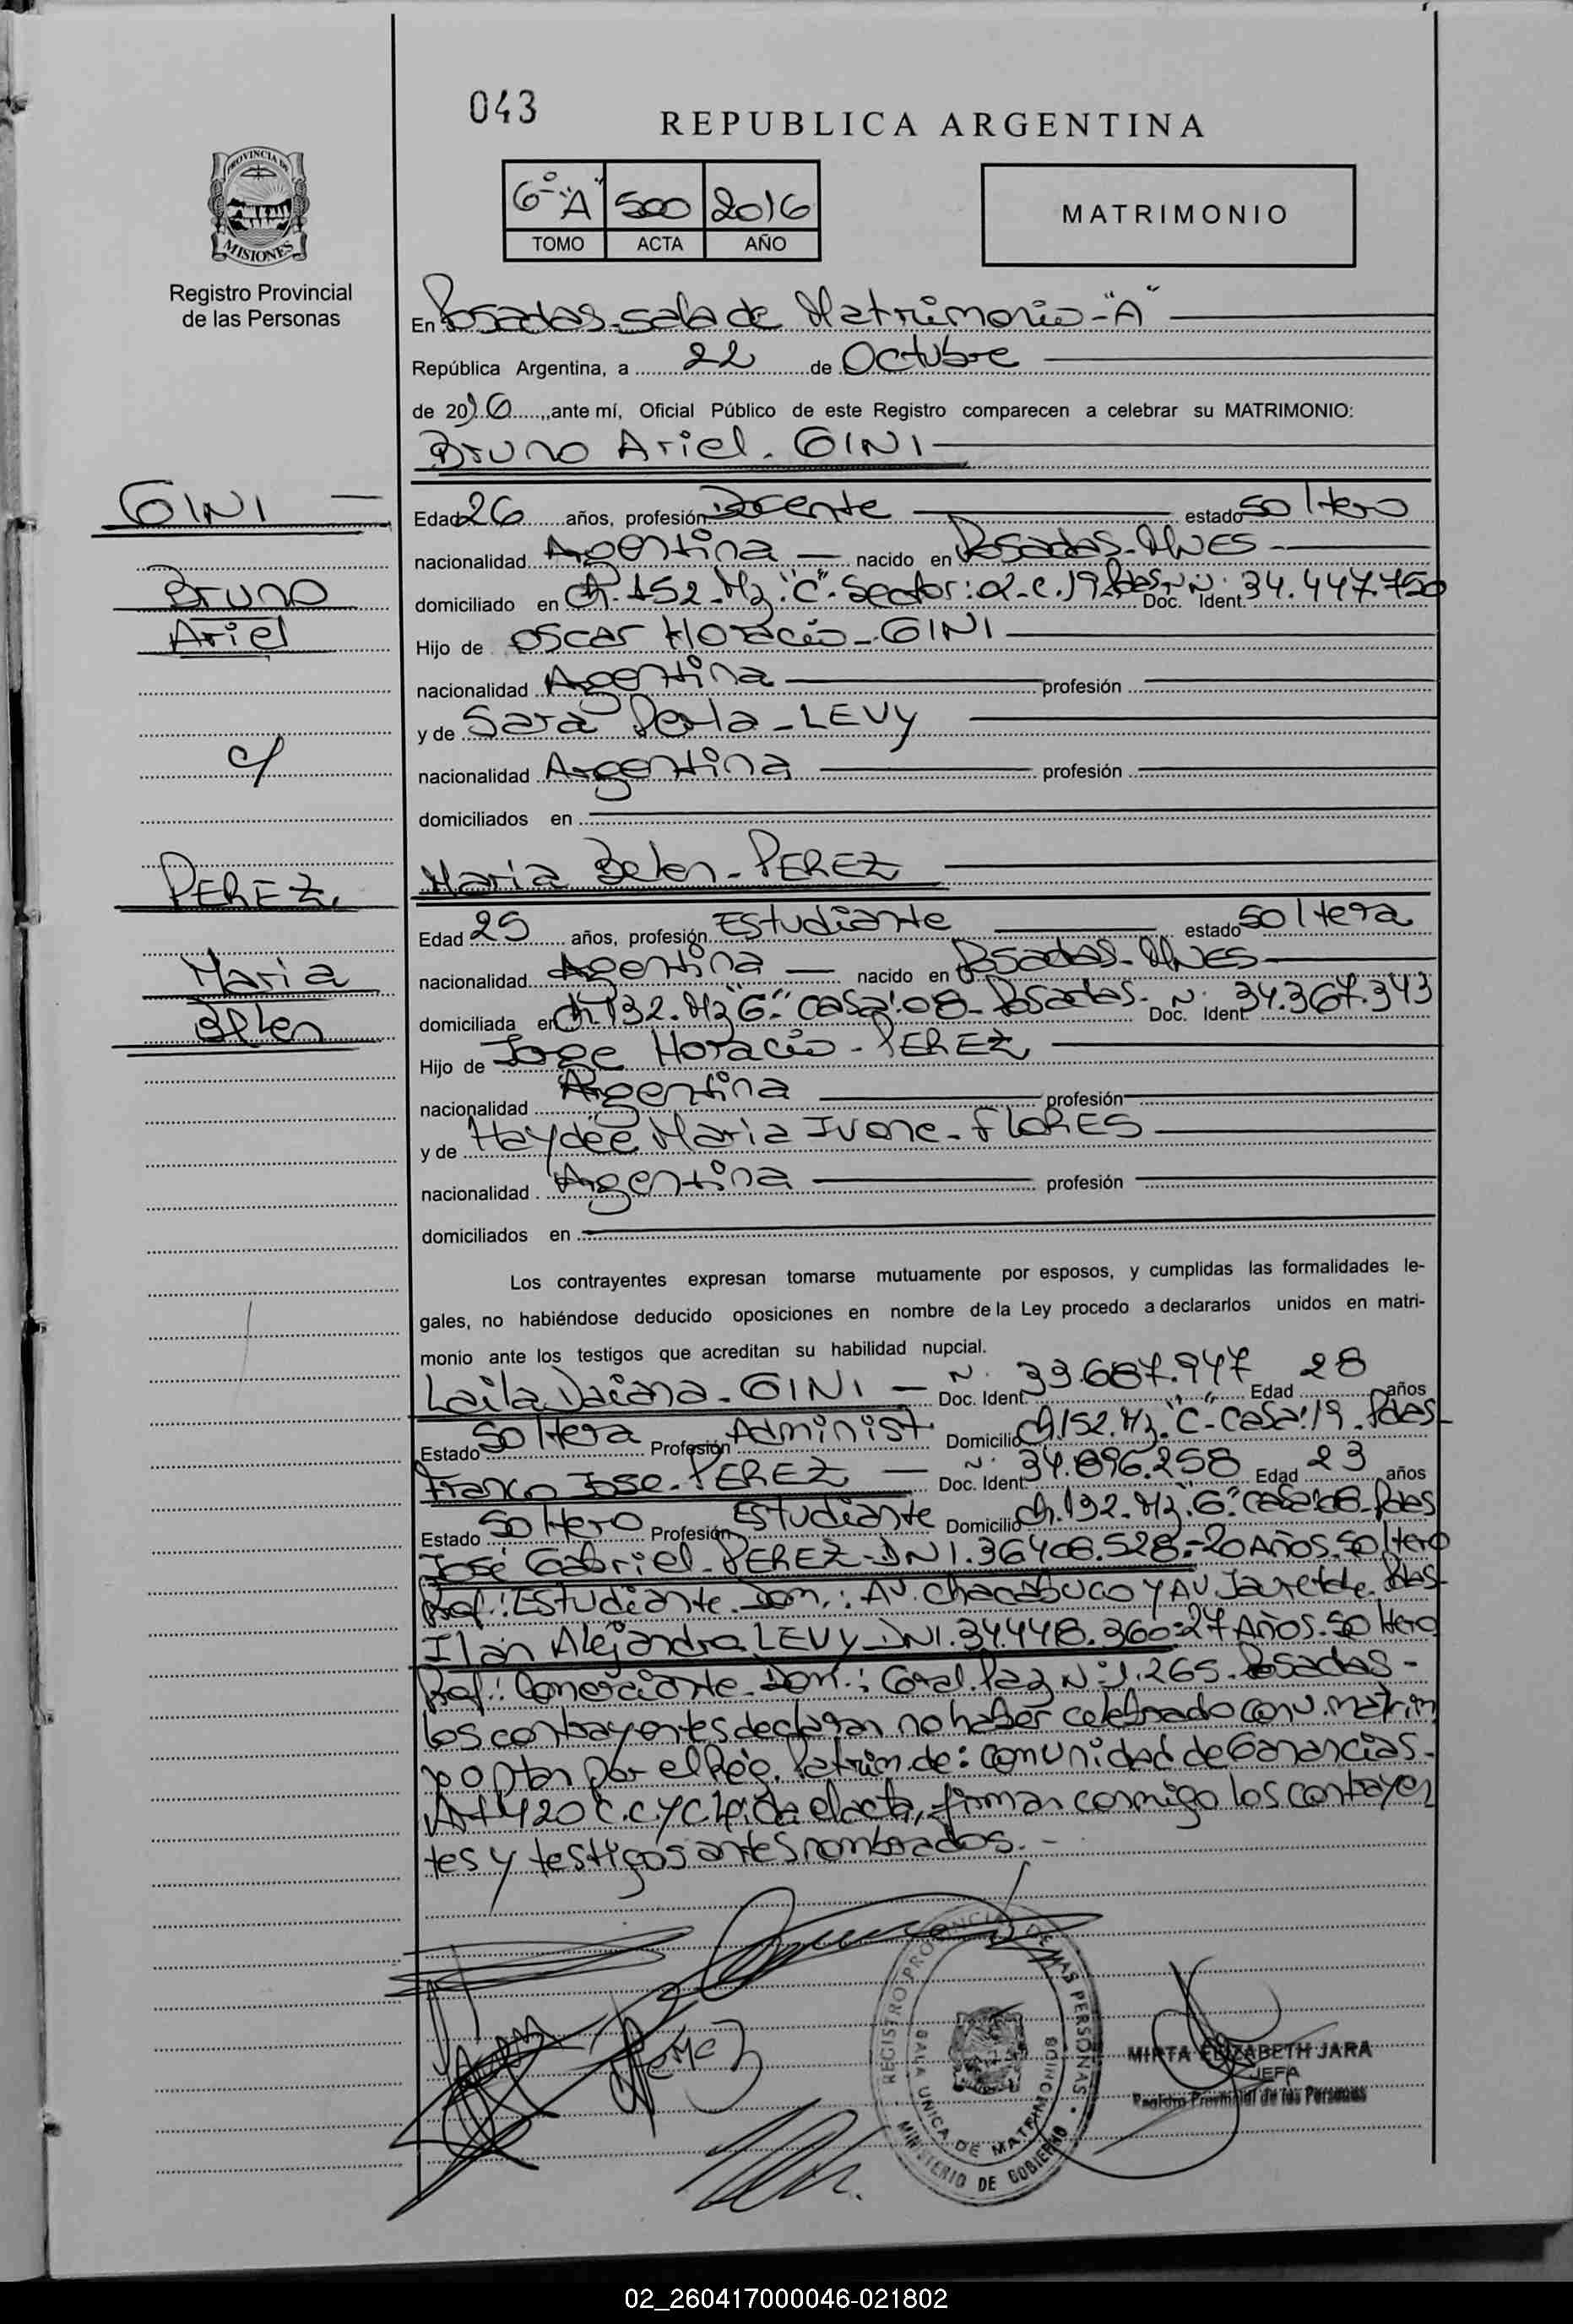 043
REPUBLICA ARGENTINA
PROVINCIA DE
MISIONES
Registro Provincial
de las Personas
6º "A" 500 2016
TOMO ACTA AÑO
MATRIMONIO
En Posadas-sala de Matrimonio-"A"
República Argentina, a 22 de Octubre
de 2016, ante mí, Oficial Público de este Registro comparecen a celebrar su MATRIMONIO:
Bruno Ariel. GINI
GINI
Bruno
Ariel
c/
PEREZ
Maria
Belen
Edad 26 años, profesión Docente estado soltero
nacionalidad Argentina nacido en Posadas-Mnes
domiciliado en Ch. 152-Mz."C"-Sector: 2-C.19 Pdas Doc. Ident. Nº 34.447.750
Hijo de Oscar Horacio-GINI
nacionalidad Argentina profesión
y de Sara Perla-LEVY
nacionalidad Argentina profesión
domiciliados en
Maria Belen-PEREZ
Edad 25 años, profesión Estudiante estado soltera
nacionalidad Argentina nacido en Posadas-Mnes
domiciliada en Ch 132-Mz"G" casa:08-Posadas- Doc. Ident Nº 34.367.343
Hijo de Jorge Horacio-PEREZ
nacionalidad Argentina profesión
y de Haydée Maria Ivone-FLORES
nacionalidad Argentina profesión
domiciliados en
Los contrayentes expresan tomarse mutuamente por esposos, y cumplidas las formalidades le-
gales, no habiéndose deducido oposiciones en nombre de la Ley procedo a declararlos unidos en matri-
monio ante los testigos que acreditan su habilidad nupcial.
Laila Daiana-GINI Doc. Ident. Nº 33.687.947 Edad 28 años
Estado Soltera Profesión Administ. Domicilio Ch.152.Mz."C"-casa:19-Pdas-
Franco Jose-PEREZ Doc. Ident Nº 34.896.258 Edad 23 años
Estado Soltero Profesión Estudiante Domicilio Ch.132-Mz."G" casa:08-Pdas
José Gabriel-PEREZ-DNI.36408.528.-20 Años.Soltero
Prof.: Estudiante-Dom.: AV. Chacabuco y AV. Pdas-
Ilan Alejandro LEVY-DNI.34.448.360:27 Años-Soltero
Prof.: Comerciante-Dom.: Gral. Paz Nº:1.265-Posadas-
los contrayentes declaran no haber celebrado conv. matrim
y optan por el Rég. Patrim. de: Comunidad de Ganancias-
Art 420 C.C.y C leida el acta, firman conmigo los contrayen
tes y testigos antes nombrados.-
Perez
REGISTRO PROVINCIAL DE LAS PERSONAS
SALA UNICA DE MATRIMONIOS
MINISTERIO DE GOBIERNO
MIRTA ELIZABETH JARA
JEFA
Registro Provincial de las Personas
02_260417000046-021802